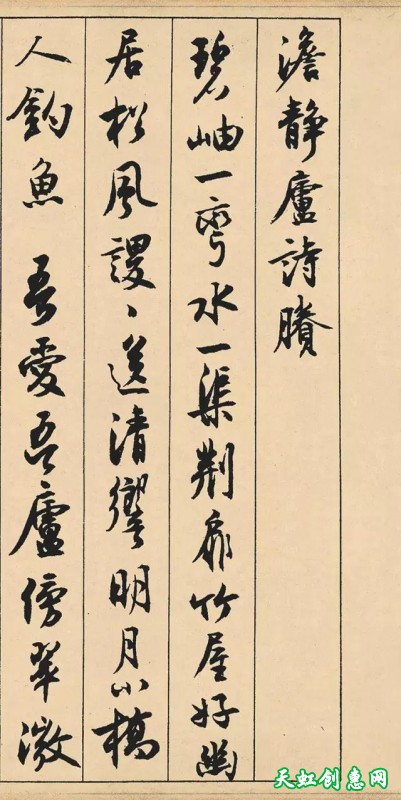 澹靜廬詩賸
碧岫一彎水一渠荆扉竹屋好幽
居松風謖〻送清響明月小橋
人釣魚 吾愛吾廬傍翠微
天虹创惠网